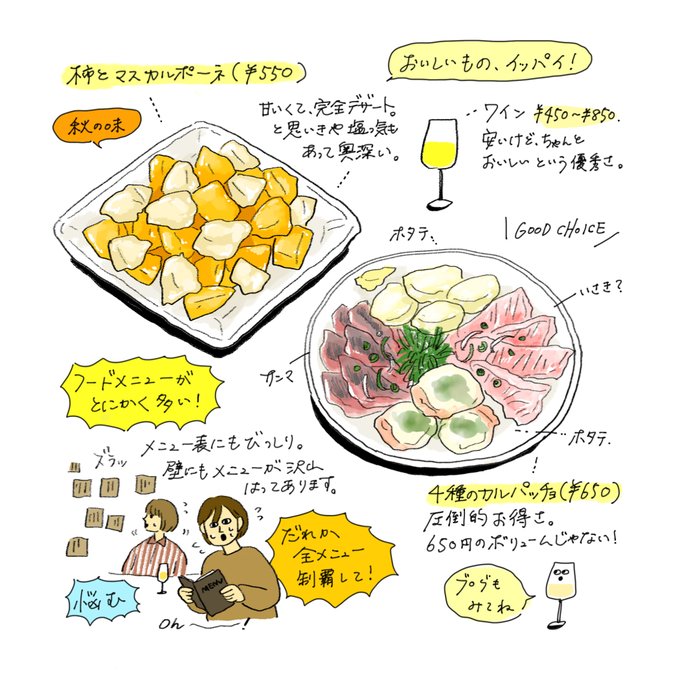 柿とマスカルポーネ(¥550)
秋の味
甘いくて、完全デザート。
と思いきや塩っ気も
あって奥深い。
おいしいもの、イッパイ!
ワイン ¥450〜¥850.
安いけど、ちゃんと
おいしいという優秀さ。
GOOD CHOICE
ホタテ
いさき?
サンマ
ホタテ
4種のカルパッチョ(¥650)
圧倒的お得さ。
650円のボリュームじゃない!
フードメニューが
とにかく多い!
メニュー表にもびっしり。
壁にもメニューが沢山
はってあります。
ズラッ
だれか
全メニュー
制覇して!
MENU
悩む
Oh ー!
ブログも
みてね!